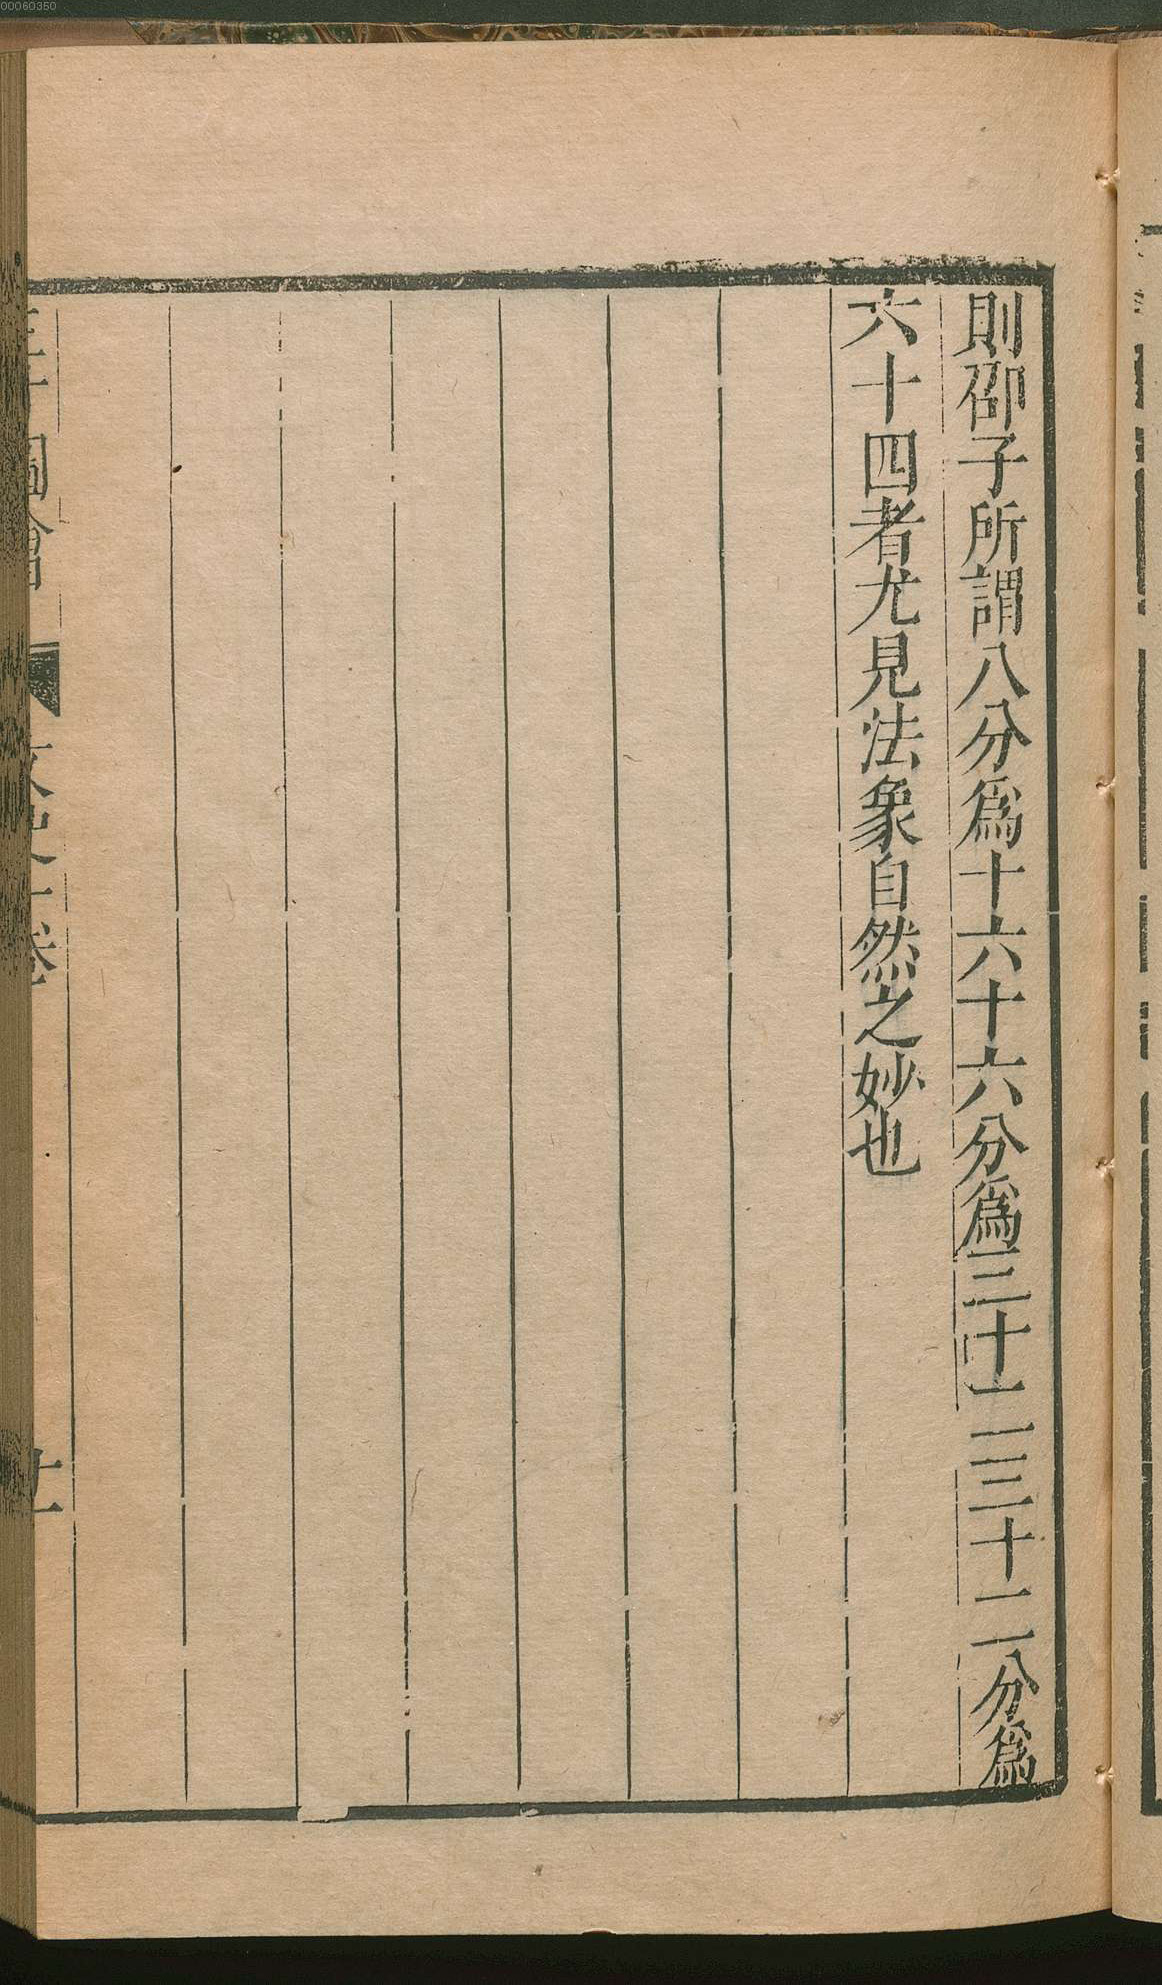 則邵子所謂八分爲十六十六分爲三十二三十二分爲
六十四者尤見法象自然之妙也
00060350